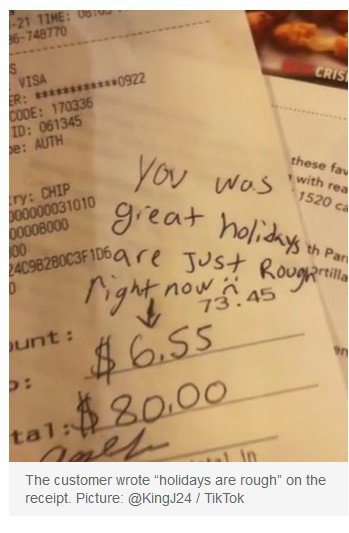 -21 TIME:
6-748770
CRIS
S
VISA
ER: ***********0922
CODE: 170336
ID: 061345
e: AUTH
these fav
with rea
1520 ca
ry: CHIP
000000031010
00008000
00
24C9B2B0C3F1D6
0
You was
great holidays
are Just Rough
right now
th Par
rtilla
73.45
ount:
$6.55
p:
tal: $80.00
The customer wrote “holidays are rough” on the
receipt. Picture: @KingJ24 / TikTok